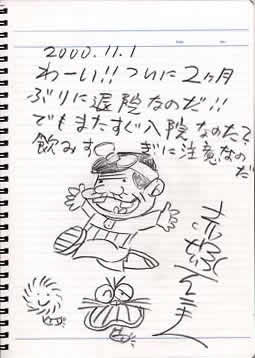 2000.11.1
わーい!!ついに2ヶ月
ぶりに退院なのだ!!
でもまたすぐ入院なのだ?
飲みすぎに注意なの
だ
赤塚不二夫